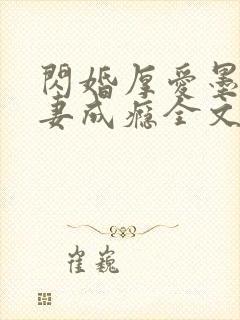 閃婚厚愛墨
妻成癮全文
崔巍